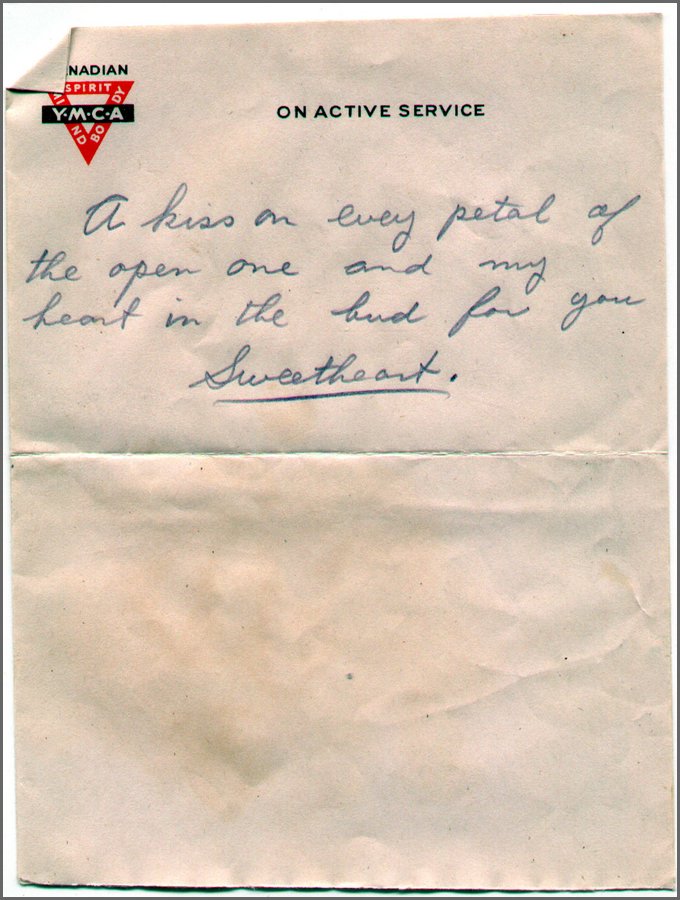 NADIAN
SPIRIT
MIND
BODY
Y·M·C·A
ON ACTIVE SERVICE
A kiss on every petal of
the open one and my
heart in the bud for you
Sweetheart.